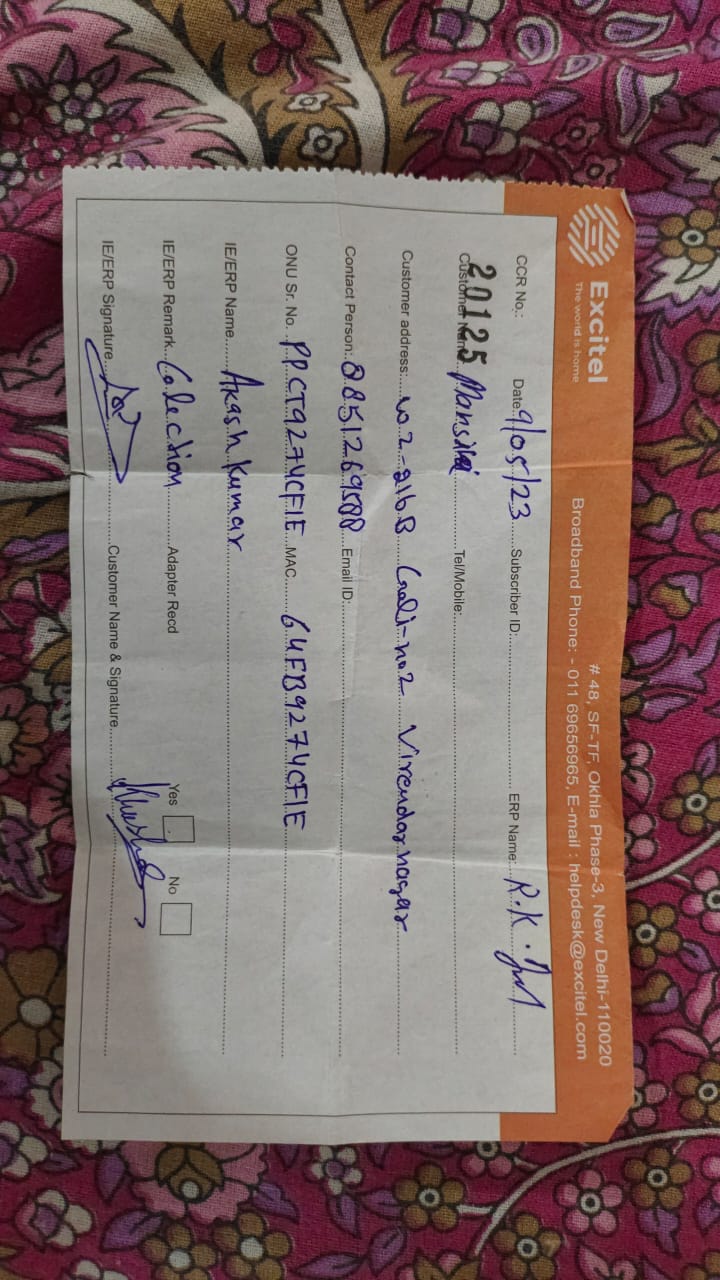 Excitel
The world is home
# 48, SF-TF, Okhla Phase-3, New Delhi-110020
Broadband Phone: - 011 69656965, E-mail : helpdesk@excitel.com
CCR No.: 20125 Date: 9/05/23 Subscriber ID: ERP Name: R.K.
Customer Name: Tel/Mobile:
Customer address: w2-216B Gali-no2 Virendar nagar
Contact Person: Email ID:
ONU Sr. No. MAC 64FB9274CF1E
IE/ERP Name Akash Kumar
IE/ERP Remark Colection Adapter Recd Yes No
IE/ERP Signature Customer Name & Signature